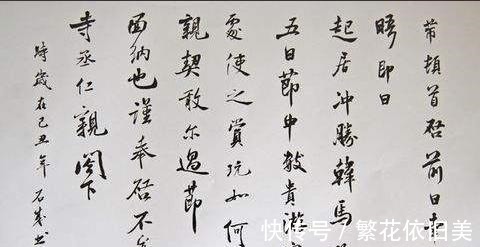 頓首啓前日
晤即日
起居冲勝韓馬
五日節中敢貴游
處使之賞玩如何
親契敢尔過節
面納也謹奉啓不
寺丞仁親閣下
時歲在己丑年 石
快传号/繁花依旧美